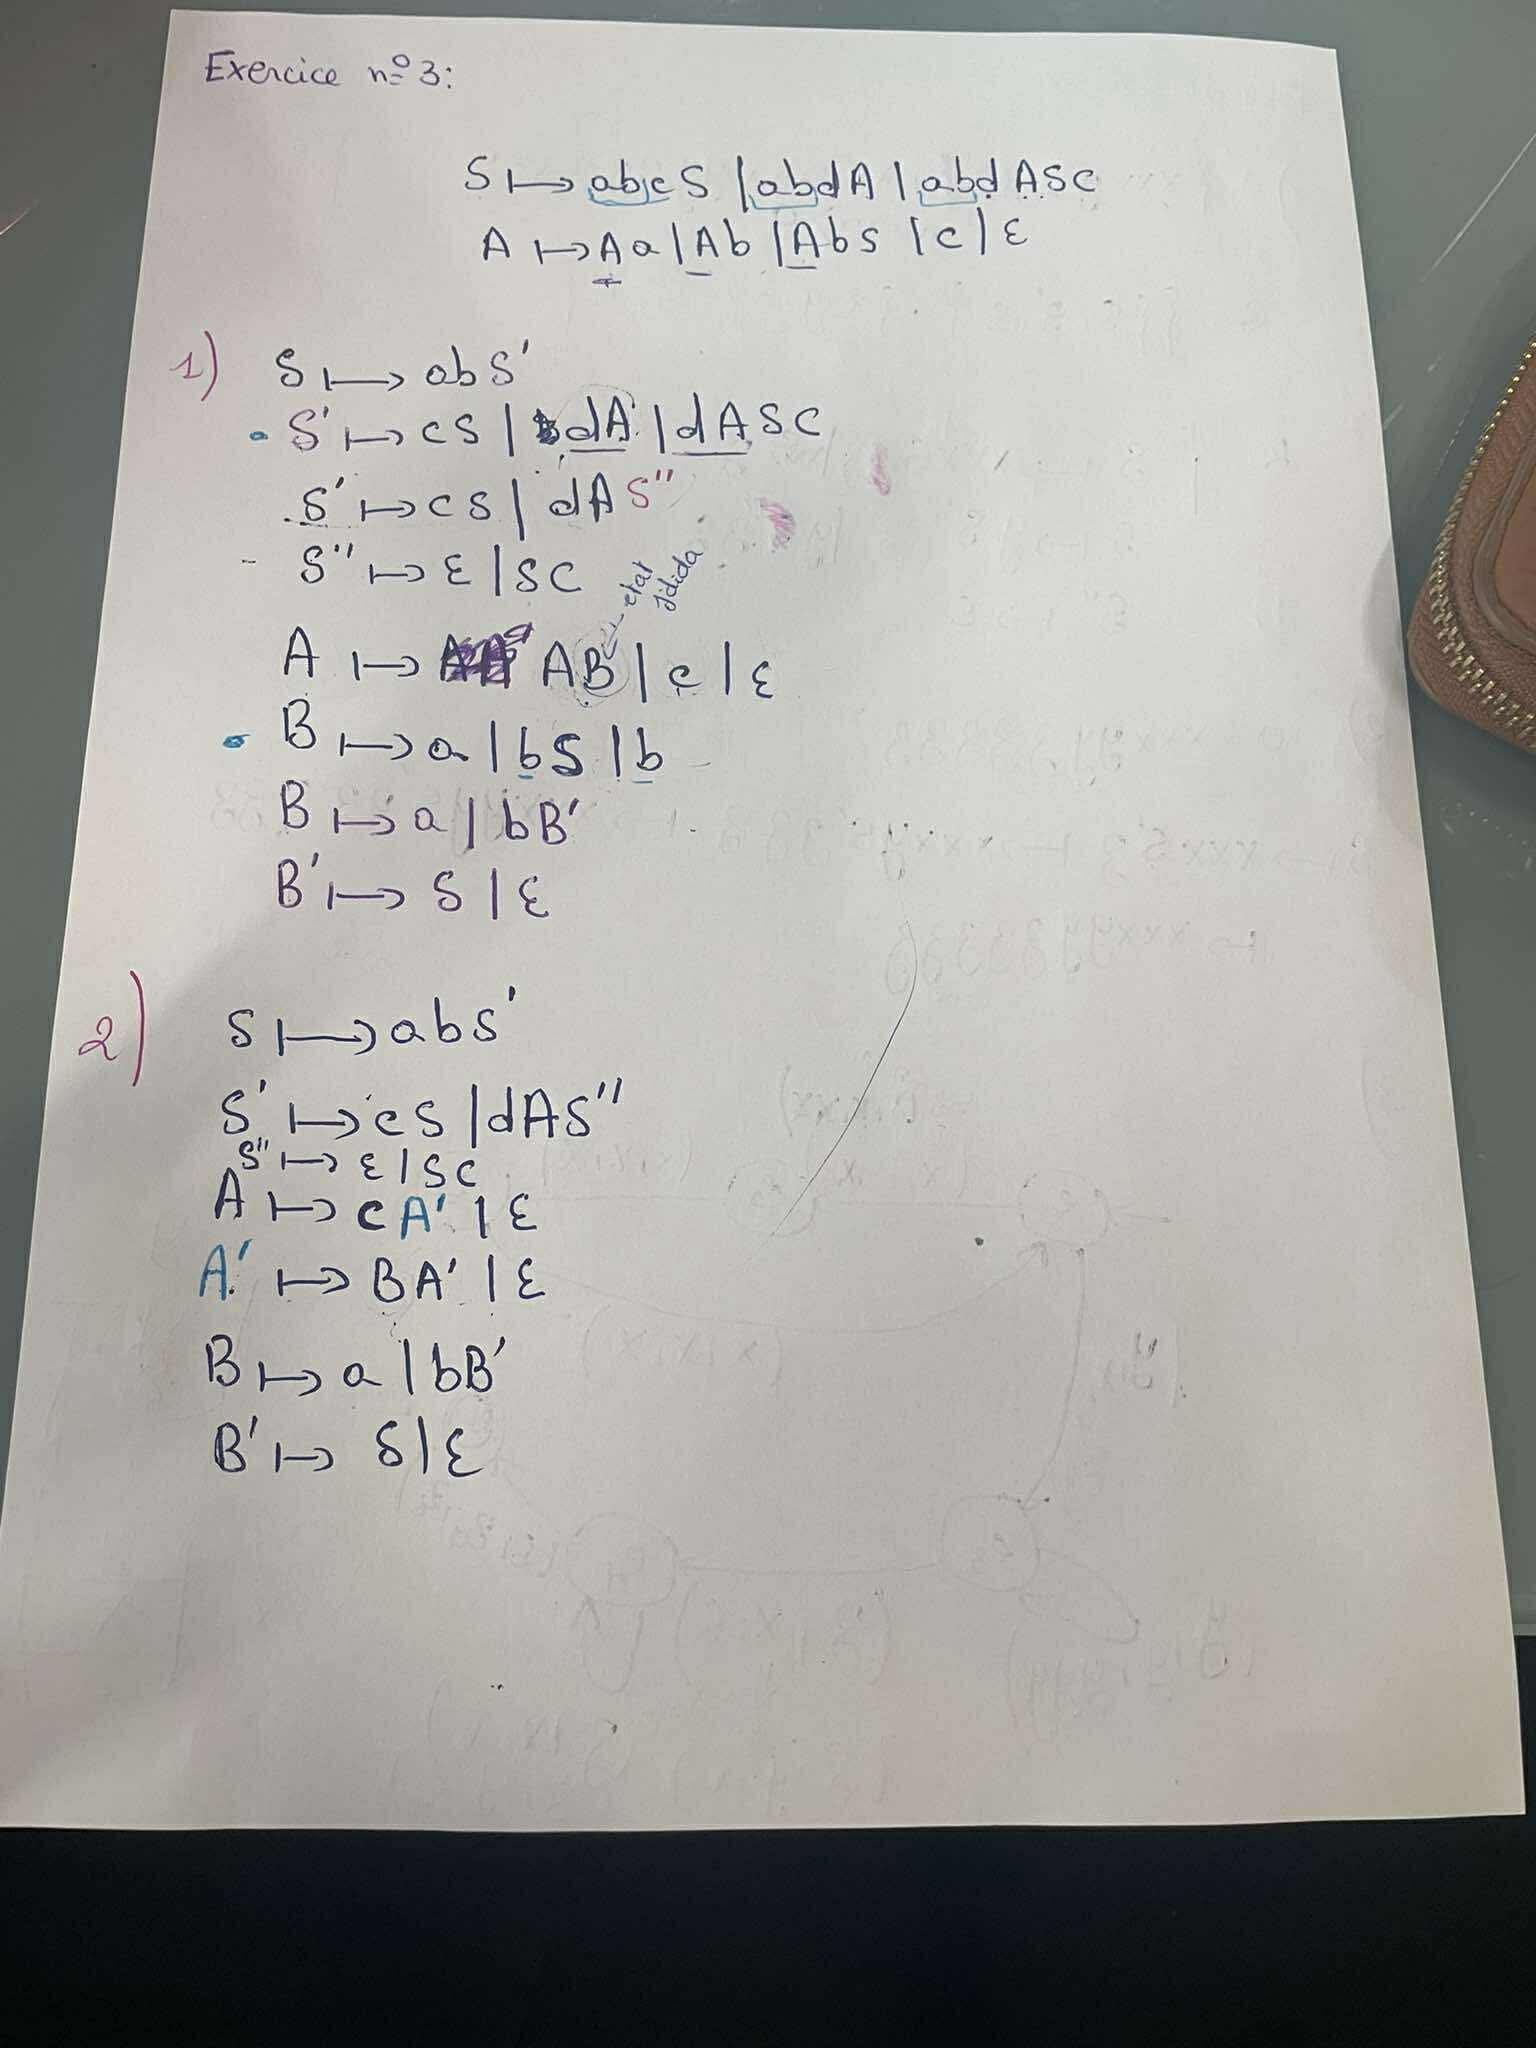 Exercice n° 3:
S ↦ abcS | abdA | abdASC
A ↦ Aa | Ab | AbS | c | ε
1) S ↦ abS'
S' ↦ cS | dA | dASC
S' ↦ cS | dAS"
S" ↦ ε | SC
etat jdida
A ↦ AB | c | ε
B ↦ a | bS | b
B ↦ a | bB'
B' ↦ S | ε
2) S ↦ abS'
S' ↦ cS | dAS"
S" ↦ ε | SC
A ↦ cA' | ε
A' ↦ BA' | ε
B ↦ a | bB'
B' ↦ S | ε